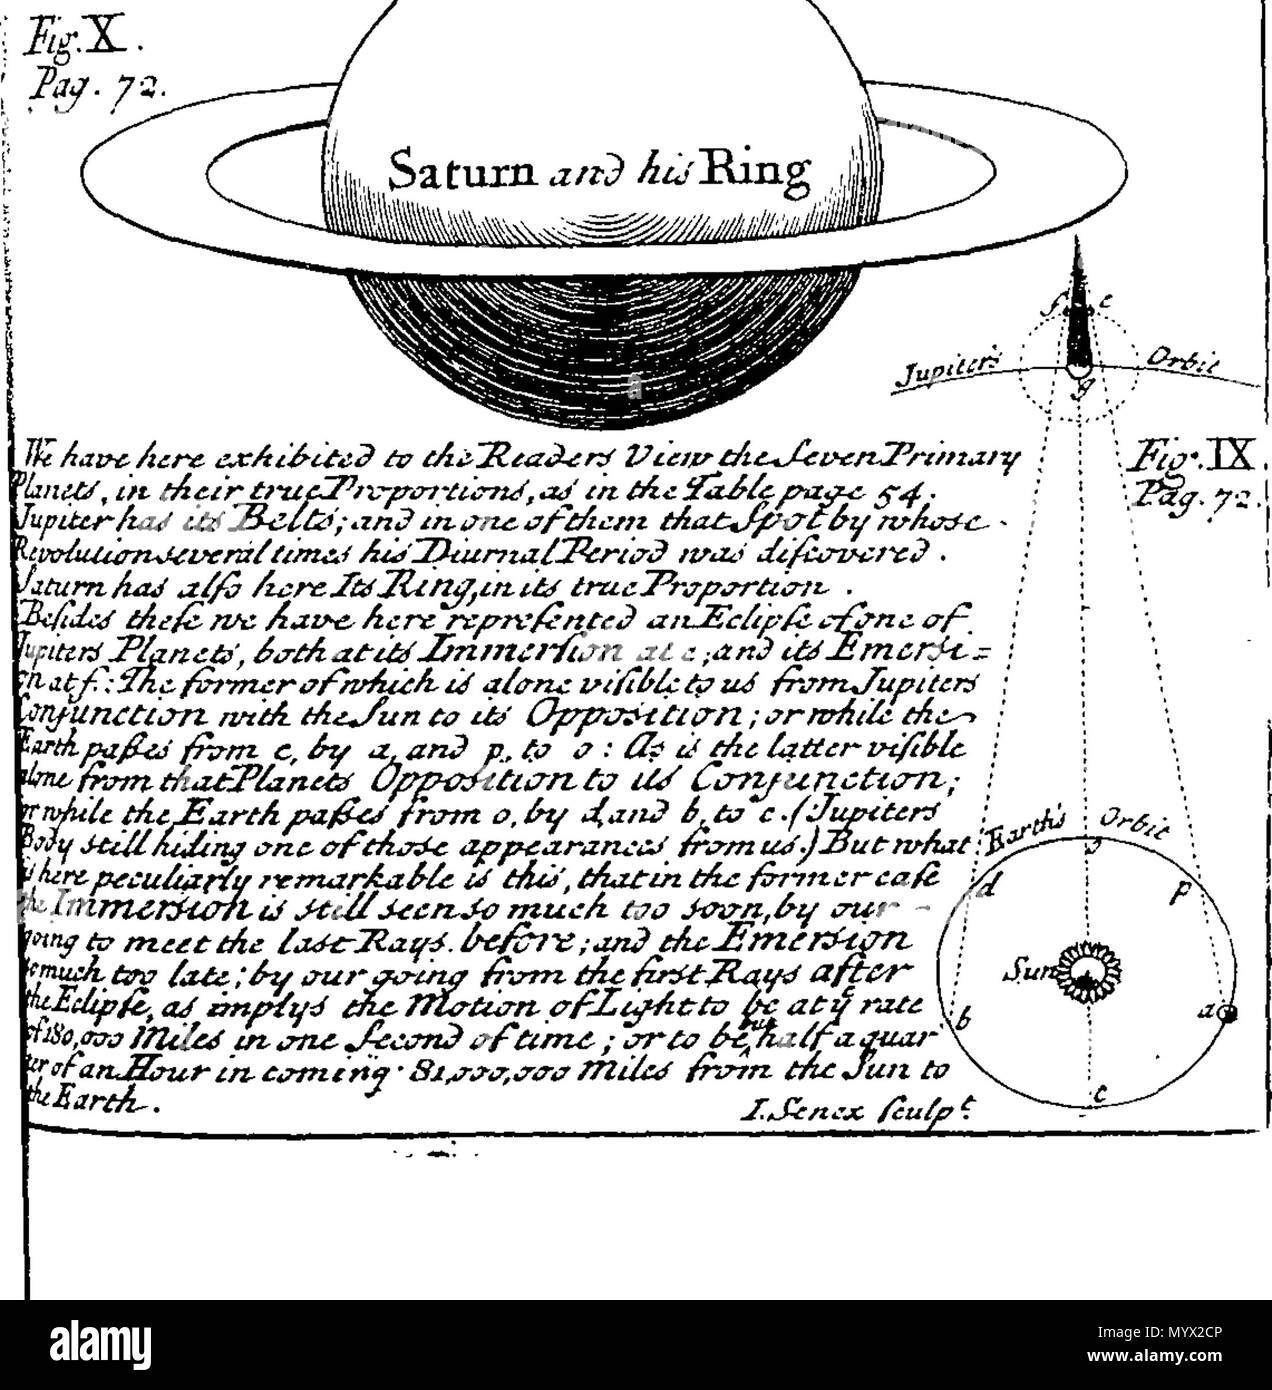 Fig. X.
Pag. 72.
Saturn and his Ring
f e
Jupiter's Orbit
g
Fig. IX
Pag. 72.
We have here exhibited to the Readers View the ſeven Primary
Planets, in their true Proportions, as in the Table page 54.
Jupiter has its Belts; and in one of them that Spot by whose
Revolution several times his Diurnal Period was diſcovered.
Saturn has alſo here Its Ring, in its true Proportion.
Beſides theſe we have here repreſented an Eclipſe of one of
Jupiters Planets, both at its Immerſion at e; and its Emersi=
on at f.: The former of which is alone viſible to us from Jupiters
Conjunction with the Sun to its Opposition; or while the
Earth paſses from c, by a, and p, to o: As is the latter viſible
alone from that Planets Opposition to us Conjunction;
or while the Earth paſses from o, by d, and b, to c. (Jupiters
Body still hiding one of those appearances from us.) But what
is here peculiarly remarkable is this, that in the former caſe
the Immersion is still seen so much too soon, by our
going to meet the last Rays before; and the Emersion
so much too late; by our going from the first Rays after
the Eclipſe, as implys the Motion of Light to be at yͤ rate
of 180,000 Miles in one Second of time; or to be but half a quar
ter of an Hour in coming 81,000,000 Miles from the Sun to
the Earth.
I. Senex ſculpᵗ.
Earth's Orbit
o
d p
Sun
b a
c
alamy
Image ID: MYX2CP
www.alamy.com